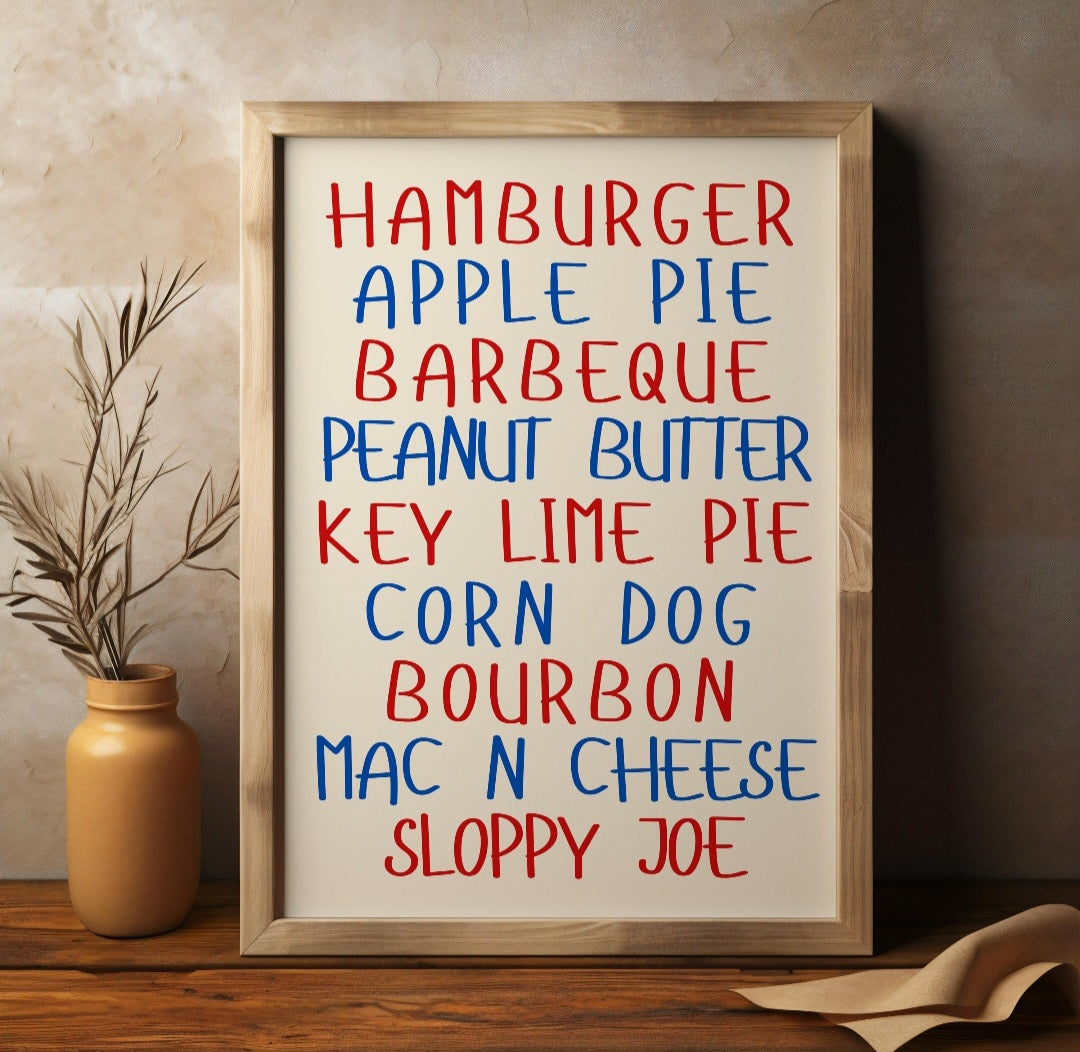 HAMBURGER
APPLE PIE
BARBEQUE
PEANUT BUTTER
KEY LIME PIE
CORN DOG
BOURBON
MAC N CHEESE
SLOPPY JOE